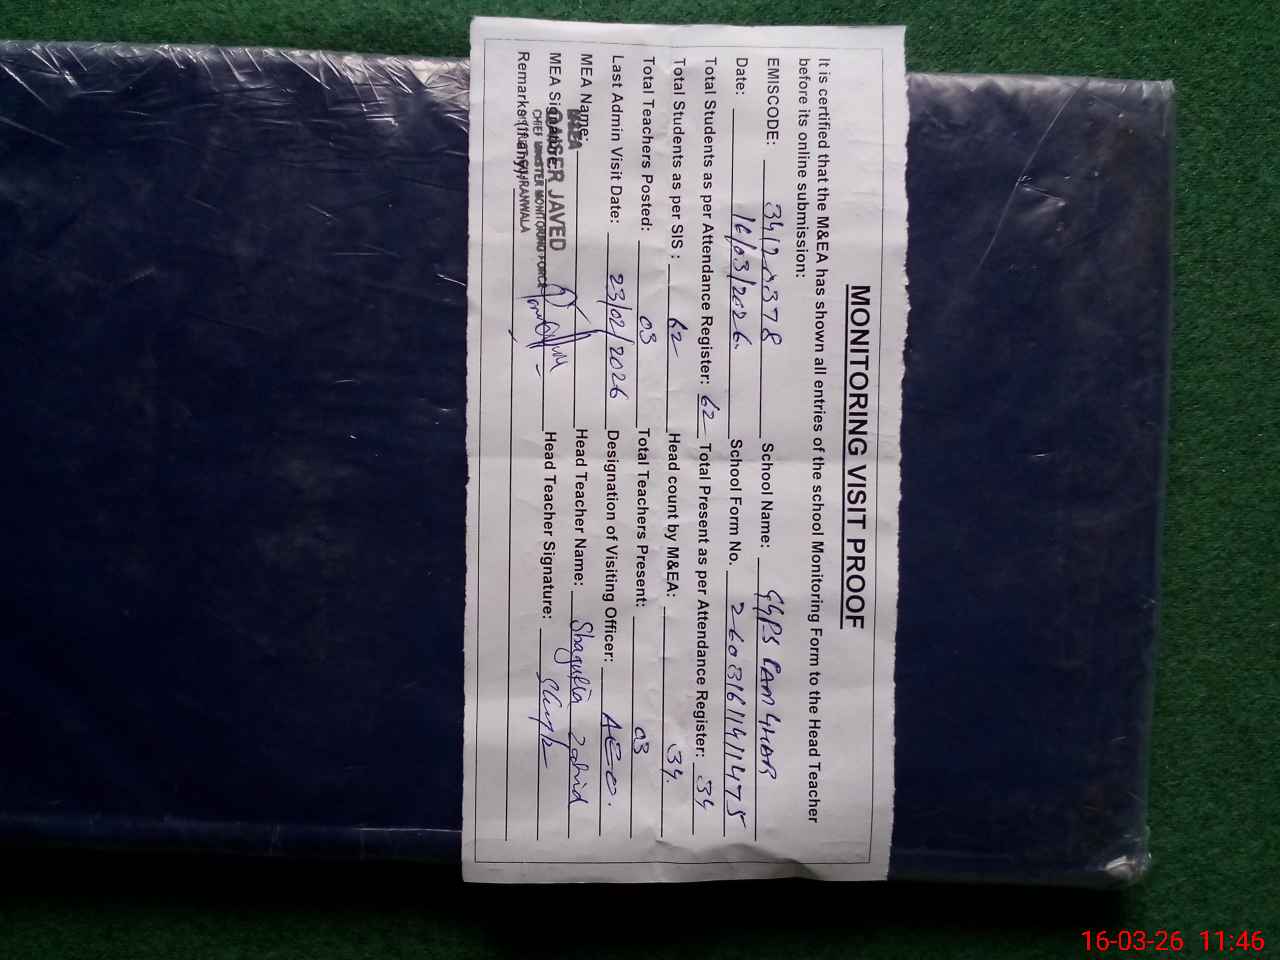 MONITORING VISIT PROOF
It is certified that the M&EA has shown all entries of the school Monitoring Form to the Head Teacher
before its online submission:
EMISCODE: School Name: GGPS RAM GHAR
Date: 16/03/2026. School Form No. 260316114111475
Total Students as per Attendance Register: 62 Total Present as per Attendance Register: 34
Total Students as per SIS : 62 Head count by M&EA: 34.
Total Teachers Posted: 03 Total Teachers Present: 03
Last Admin Visit Date: 23/02/2026 Designation of Visiting Officer: AEO.
MEA Name: Head Teacher Name: Shagufta Zahid
MEA Signature: Head Teacher Signature:
Remarks (If any):
MEA
QAISER JAVED
CHIEF MINISTER MONITORING FORCE
16-03-26 11:46